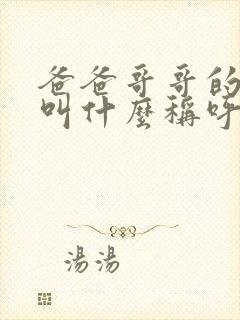 爸爸哥哥的
叫什麼稱呼
湯湯